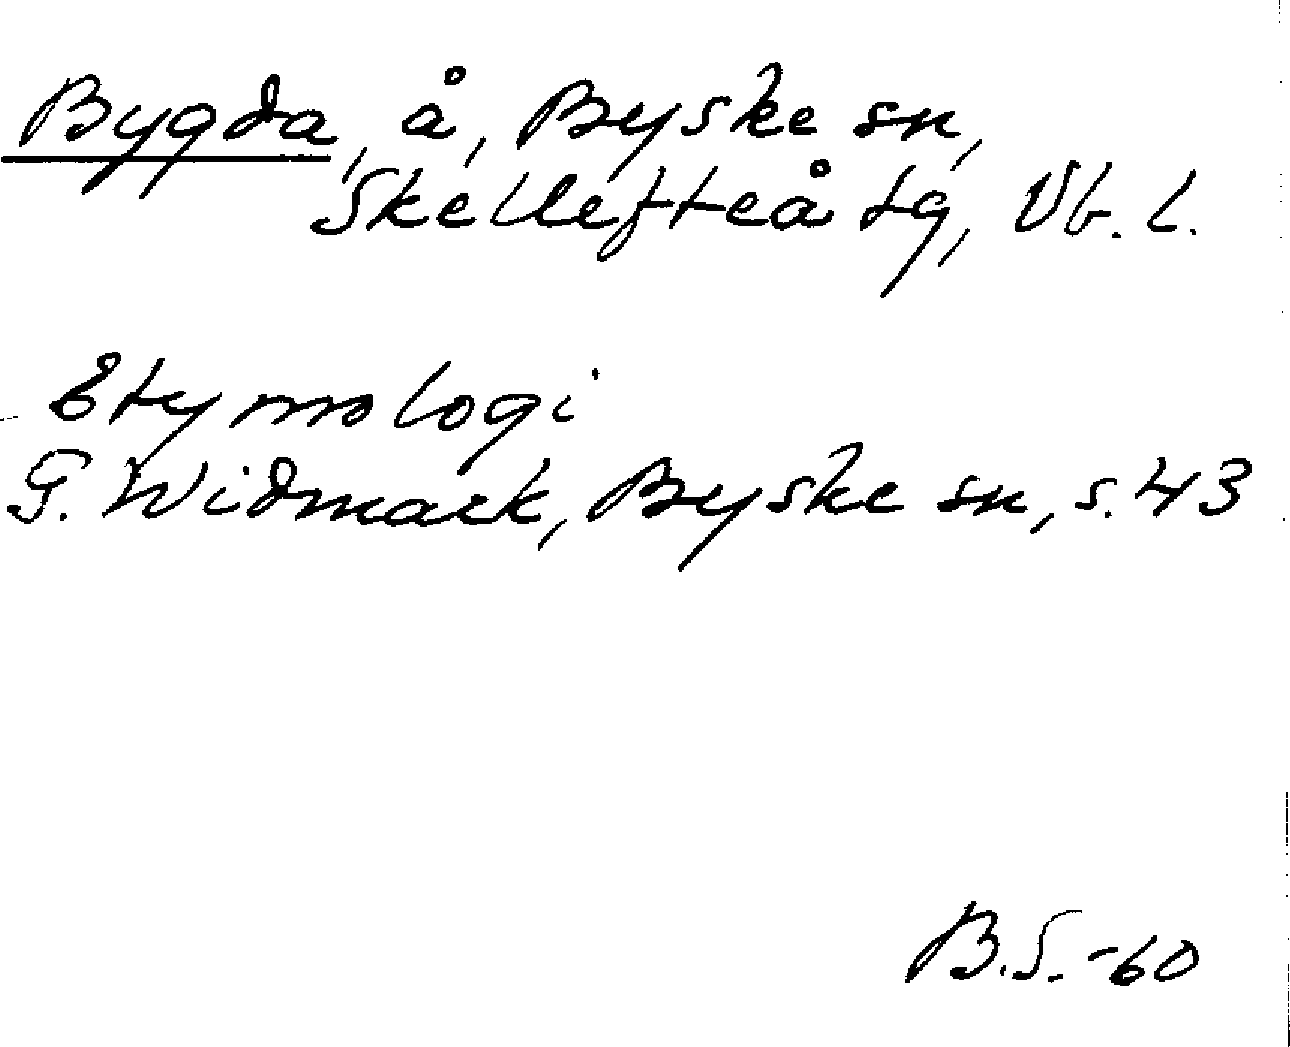 Bygda, å, Byske sn,
Skellefteå tg, Vb. l.
Etymologi
G. Widmark, Byske sn, s. 43
B.S. -60